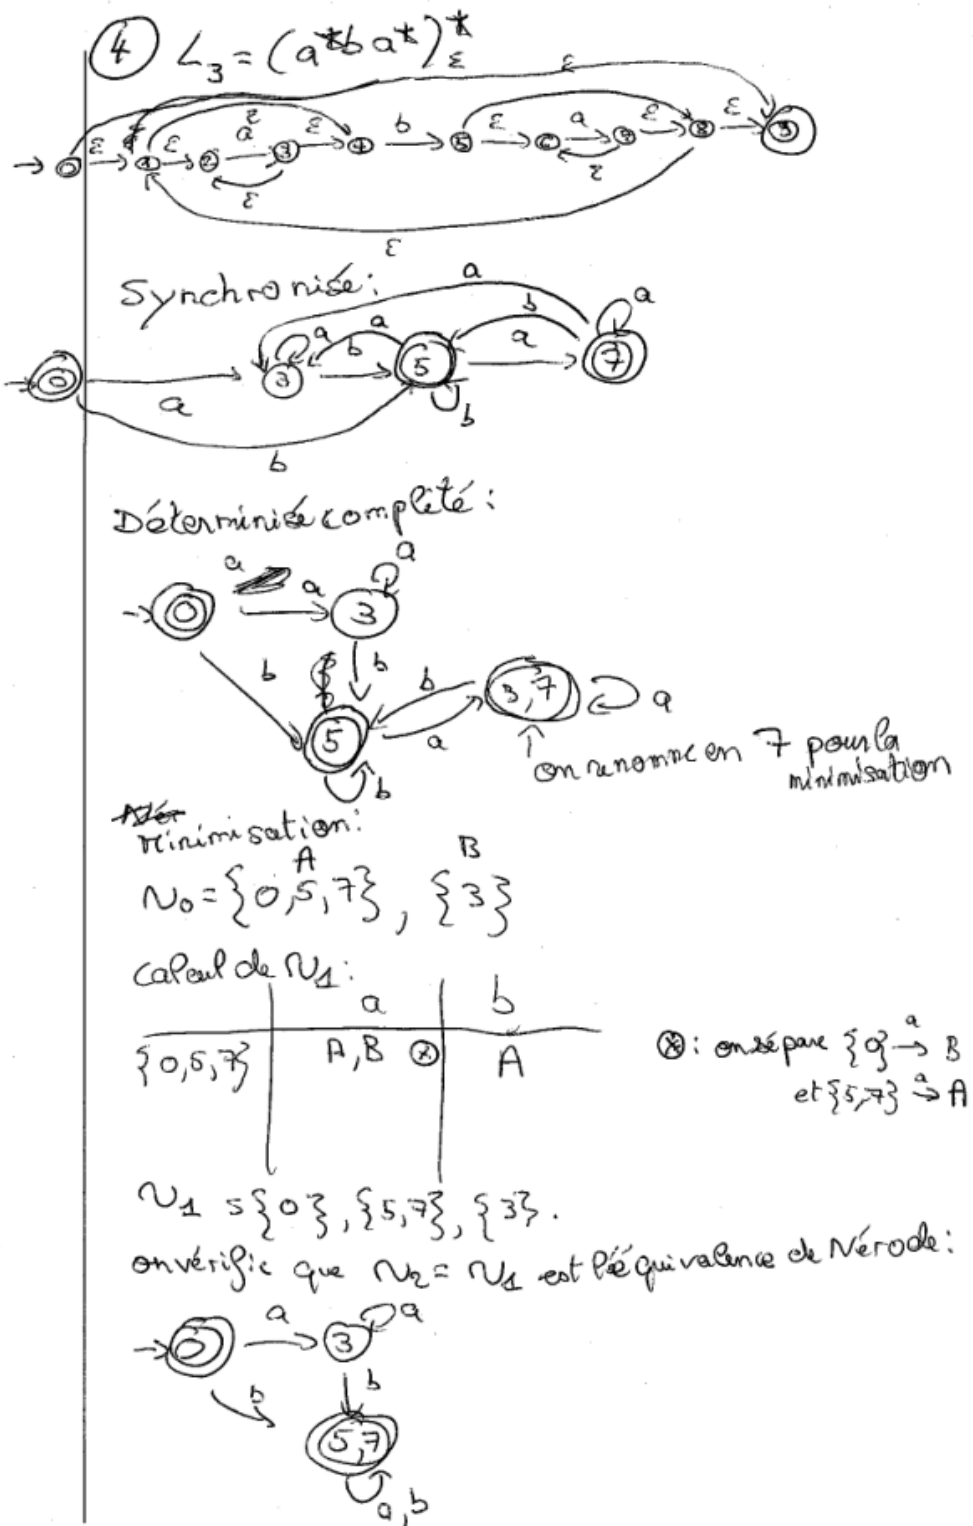 ④ L₃ = (a*ba*)*
ε ε
ε ε a ε ε b ε a ε ε
0 1 2 3 4 5 6 7 8 9
ε ε
ε
Synchronisé :
a
a a b a
b a
0 3 5 7
a b
b
Déterminisé complété :
a a a
0 3
b b b 3,7 a
5 a
b
↑ on renomme en 7 pour la
minimisation
Minimisation :
A B
N₀ = {0,5,7}, {3}
Calcul de N₁ :
a b
{0,5,7} A,B ⊗ A
⊗ : on sépare {0} a→ B
et {5,7} a→ A
N₁ = {0}, {5,7}, {3}.
on vérifie que N₂ = N₁ est l'équivalence de Nérode :
a a
0 3
b b
5,7
a,b